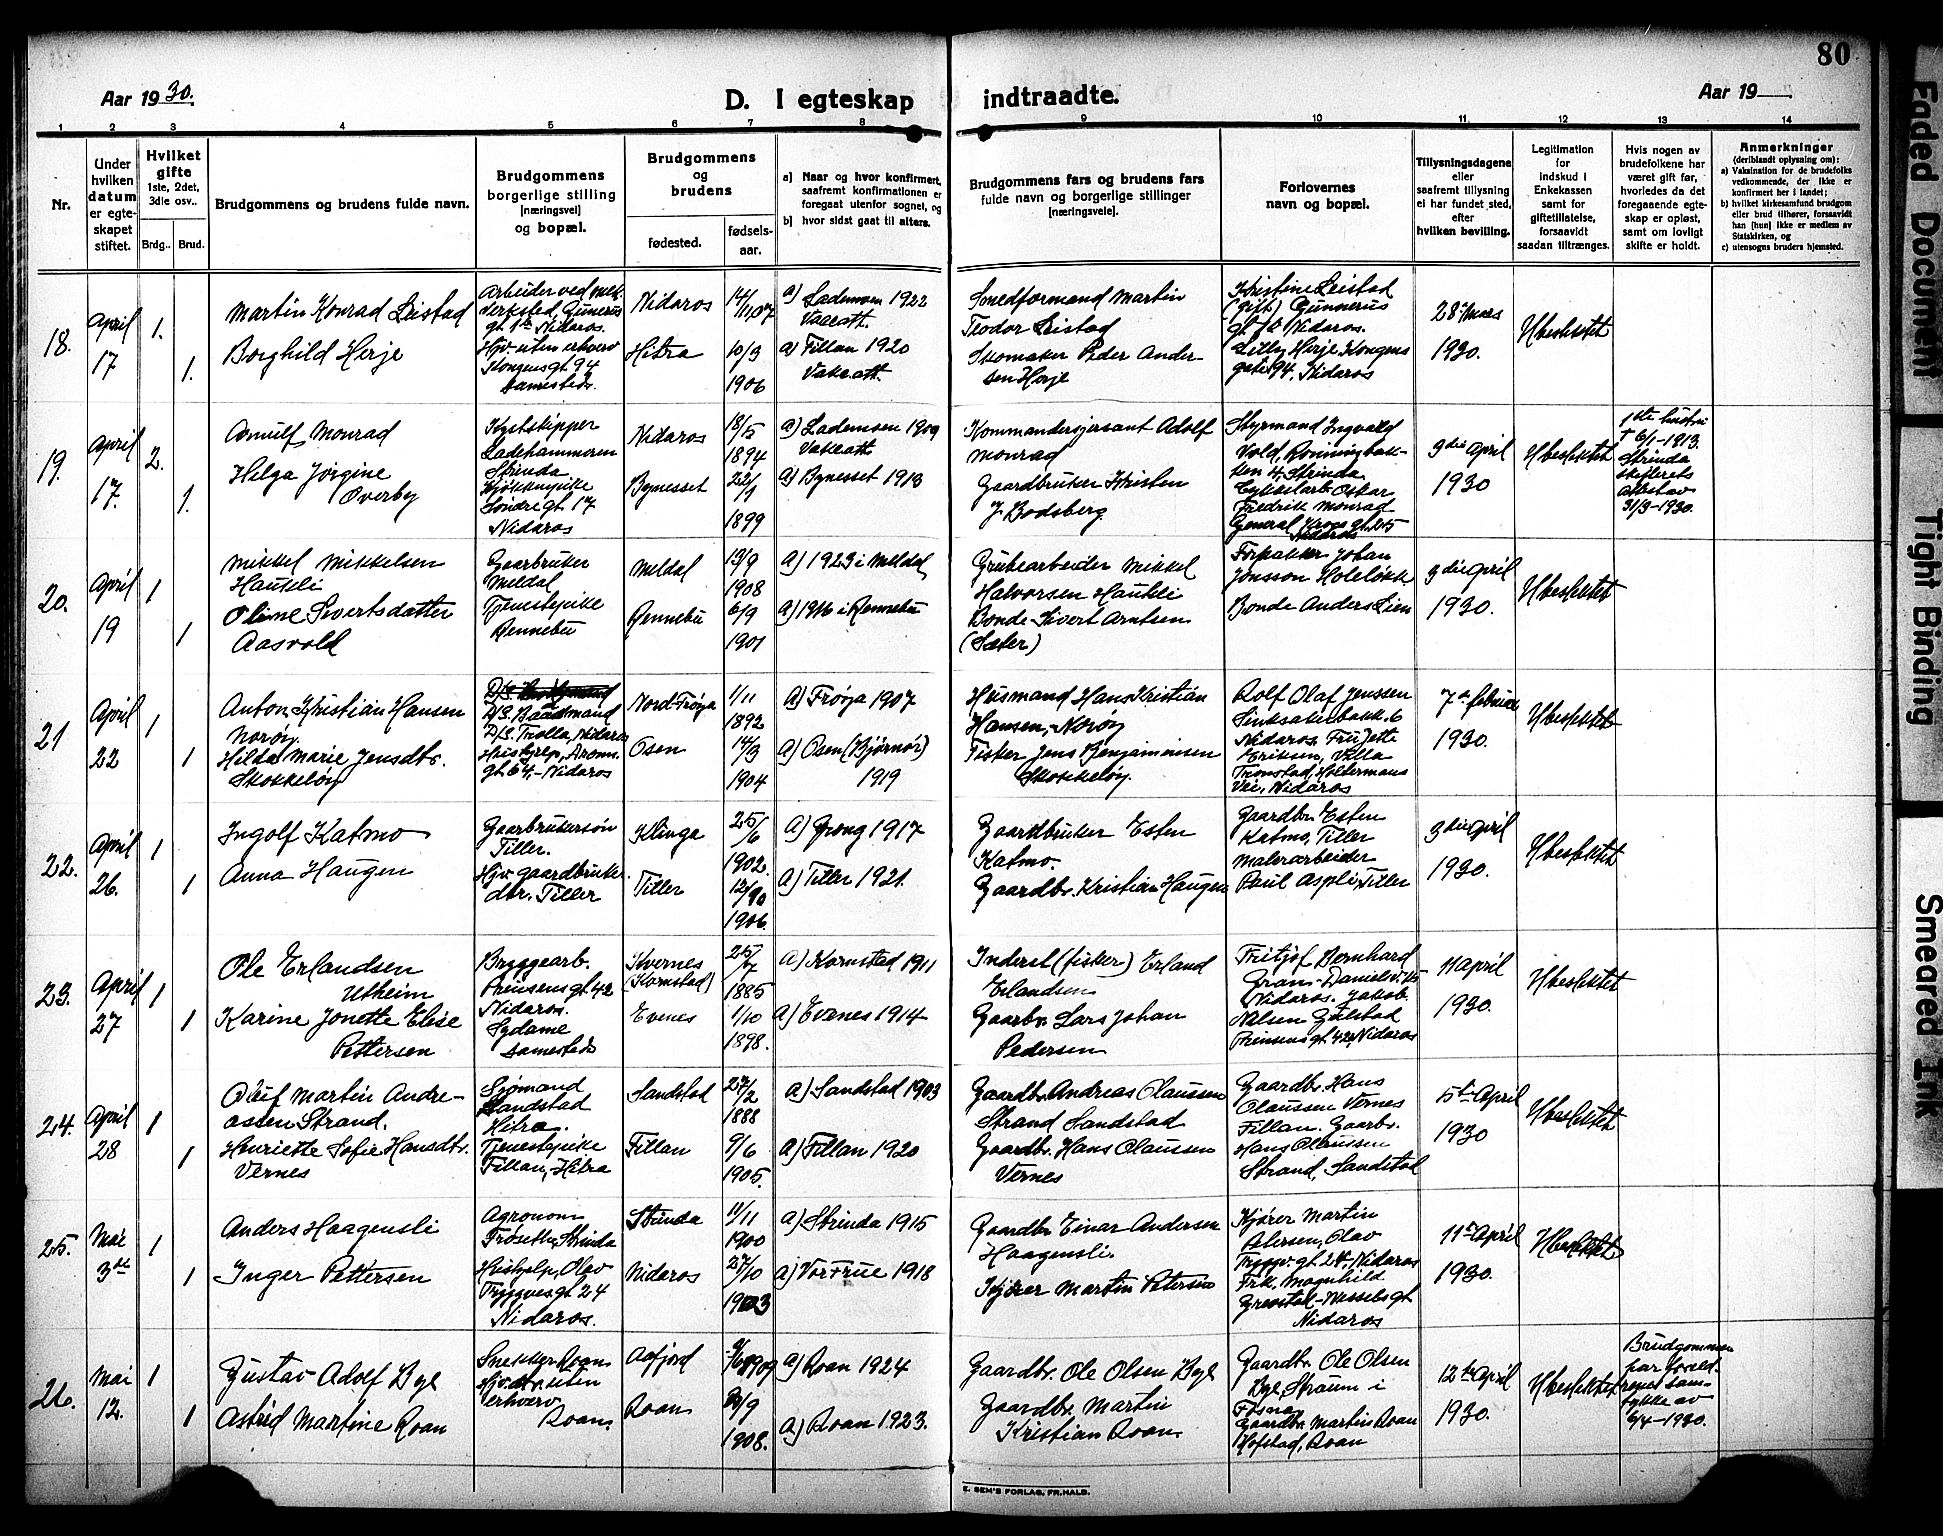 80
Aar 1930.
D. I egteskap indtraadte.
Aar 19
1 2 3 4 5 6 7 8 9 10 11 12 13 14
Nr.
Under hvilken datum er egteskapet stiftet.
Hvilket gifte
1ste, 2det, 3die osv..
Brdg.. Brud.
Brudgommens og brudens fulde navn.
Brudgommens borgerlige stilling [næringsvei] og bopæl.
Brudgommens og brudens
fødested.
fødselsaar.
a) Naar og hvor konfirmert, saafremt konfirmationen er foregaat utenfor sognet, og
b) hvor sidst gaat til alters.
Brudgommens fars og brudens fars
fulde navn og borgerlige stillinger
[næringsveie].
Forlovernes navn og bopæl.
Tillysningsdagene eller saafremt tillysning ei har fundet sted, efter hvilken bevilling.
Legitimation for indskud i Enkekassen samt for giftetillatelse, forsaavidt saadan tiltrænges.
Hvis nogen av brudefolkene har været gift før, hvorledes da det foregaaende egteskap er opløst, samt om lovligt skifte er holdt.
Anmerkninger
(deriblandt oplysning om):
a) Vaksination for de brudefolks vedkommende, der ikke er konfirmert her i landet;
b) hvilket kirkesamfund brudgom eller brud tilhører, forsaavidt han [hun] ikke er medlem av Statskirken, og
c) utensogns bruders hjemsted.
18.
April
17
1.
1.
Martin Konrad Leistad
Borghild Herje
Arbeider ved mek.
Verksted,
Nidaros.
Hjv. uten erhverv
Kongensgt 94
sammesteds.
Nidaros
Hitra
14/11 07
10/3
1906
a) Lademoen 1922
Vakeatt.
a) Fillan 1920
Vakeatt.
Smedformand Martin
Teodor Leistad
Skomaker Peder Andersen Herje
Kristine Leistad
(gift) Gunnerus
Nidaros.
Lilly Herje, Kongens
gate 94, Nidaros
28de Mars
1930.
Ubeslektet
19.
April
17.
2.
1.
Arnulf Monrad
Helga Jørgine
Overby
Kystskipper
Ladehammeren
Strinda
Kjøkkenpike
Søndregt 17
Nidaros
Nidaros
Bynesset
18/5
1894
22/1
1899
a) Lademoen 1909
Vakeatt
a) Bynesset 1913
Kommandersjersant Adolf
Monrad
Gaardbruker Kristen
J. Bodsberg.
Styrmand Ingvald
Vold, Rønningbakken 4, Strinda
Oskar
Fredrik Monrad
General Krogs gt. 25
Nidaros
9die April
1930
Ubeslektet
1ste hustru
† 6/1-1913.
Strinda
skifterets
attest av
31/3-1930.
20.
April
19
1
1
Mikkel Mikkelsen
Haukli
Oline Sivertsdatter
Aasvold
Gaarbruker
Meldal
Tjenestepike
Rennebu
Meldal
Rennebu
13/9
1908
6/9
1901
a) 1923 i Meldal
a) 1916 i Rennebu
Grubearbeider Mikkel
Halvorsen Haukli
Bonde Sivert Arntsen
(Sæter)
Forpakter Johan
Jonsson Holeløkk
Bonde Anders Lien
3die April
1930.
Ubeslektet
21
April
22
1
1
Anton Kristian Hansen
Norøy.
Hilda Marie Jensdtr.
Skokkeløy
D/S. Baadsmand
D/S. Trolla, Nidaros
Husbyrep,
gt. 64,- Nidaros
Nord-Frøya
Osen
1/11
1892
14/3
1904
a) Frøya 1907
a) Osen (Bjørnør)
1919
Husmand Hans Kristian
Hansen,- Norøy
Fisker Jens Benjaminsen
Skokkeløy.
Rolf Olaf Jenssen
Sinksakerbakk. 6
Nidaros. Fru Jette
Eriksen, Villa
Tronstad, Holtermans
Vei, Nidaros
7de Februar
1930.
Ubeslektet
22.
April
26.
1
1
Ingolf Katmo
Anna Haugen
Gaarbrukersøn
Tiller.
Hjv. gaardbruker
dtr. Tiller
Klinga
Tiller
25/6
1902.
12/10
1906.
a) Grong 1917
a) Tiller 1921.
Gaardbruker Esten
Katmo.
Gaardbr. Kristian Haugen
Gaardbr. Esten
Katmo, Tiller
Malerarbeider
Paul Aspli, Tiller
3die April
1930.
Ubeslektet
23.
April
27
1
1
Ole Erlandsen
Utheim
Karine Jonette Elise
Pettersen
Bryggearb.
Prinsensgt. 42
Nidaros.
Sydame
sammesteds
Kvernes
(Kornstad)
Evenes
25/7
1885
1/10
1898.
a) Kornstad 1911
a) Evenes 1914
Inderst (fisker) Erland
Erlandsen
Gaarbr. Lars Johan
Pedersen
Fritjof Bernhard
Gran-
Nidaros. Jakob
Nilsen Gulstad
Prinsens gt 42, Nidaros
11 April
1930.
Ubeslektet
24.
April
28
1
1
Oluf Martin Andreassen Strand.
Henriette Sofie Hansdtr.
Vernes
Sjømand
Sandstad
Hitra.
Tjenestepike
Fillan, Hitra
Sandstad
Fillan
27/2
1888
9/6
1905.
a) Sandstad 1903
a) Fillan 1920
Gaardbr. Andreas Claussen
Strand Sandstad
Gaardbr. Hans Claussen
Vernes
Gaardbr. Hans
Claussen Vernes
Fillan. Gaarbr.
Hans Claussen
Strand, Sandstad
5te April
1930
Ubeslektet
25.
Mai
3die
1
1
Anders Haagensli
Inger Pettersen
Agronom
Frøseth, Strinda
Hushjelp, Olav
Tryggvesgt. 24
Nidaros.
Strinda
Nidaros
11/11
1900
27/10
1903
a) Strinda 1915
a) Vor Frue 1918
Gaardbr. Einar Andersen
Haagensli.
Kjører Martin Petersen
Kjører Martin
Petersen, Olav
Tryggv. gt 24, Nidaros
Frk. Magnhild
Grenstad - Wesselsgt
Nidaros
11te April
1930.
Ubeslektet
26.
Mai
12.
1
1
Gustav Adolf Bye
Astrid Martine Roan
Snekker, Roan
Hjv. dtr. uten
erhverv
Roan.
Aafjord
Roan
1909
1908.
a) Roan 1924
a) Roan 1923.
Gaardbr. Ole Olsen Bye
Gaardbr. Martin
Kristian Roan.
Gaardbr. Ole Olsen
Bye, Straum i
Fosna,
Gaardbr. Martin Roan
Hofstad, Roan
12te April
1930.
Ubeslektet
Brudgommen
har foreldrenes samtykke av
6/4-1930.
E. SEM'S FORLAG, FR.HALD.
Faded Document
Tight Binding
Smeared Ink